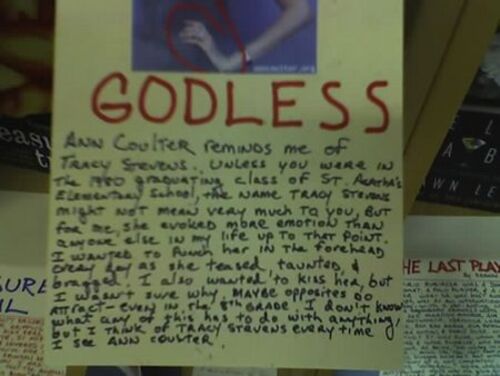 GODLESS
ANN COULTER REMINDS ME OF
TRACY STEVENS. UNLESS YOU WERE IN
THE 1980 GRADUATING CLASS OF ST. AGATHA'S
ELEMENTARY SCHOOL, THE NAME TRACY STEVENS
MIGHT NOT MEAN VERY MUCH TO YOU, BUT
FOR ME, SHE EVOKED MORE EMOTION THAN
ANYONE ELSE IN MY LIFE UP TO THAT POINT.
I WANTED TO PUNCH HER IN THE FOREHEAD
EVERY DAY AS SHE TEASED, TAUNTED, &
BRAGGED. I ALSO WANTED TO KISS HER, BUT
I WASN'T SURE WHY. MAYBE OPPOSITES DO
ATTRACT - EVEN IN THE 8TH GRADE. I DON'T KNOW
WHAT ANY OF THIS HAS TO DO WITH ANYTHING,
BUT I THINK OF TRACY STEVENS EVERY TIME
I SEE ANN COULTER.
HE LAST PLAY